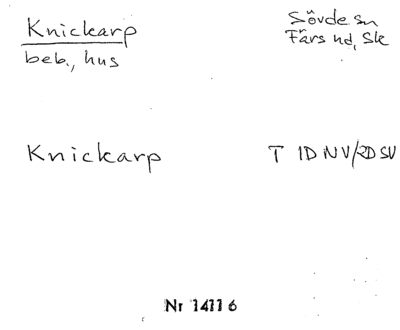 Knickarp
Sövde sn
beb., hus
Färs hd, Sk
Knickarp
T 1D NV/2D SV
Nr 14116